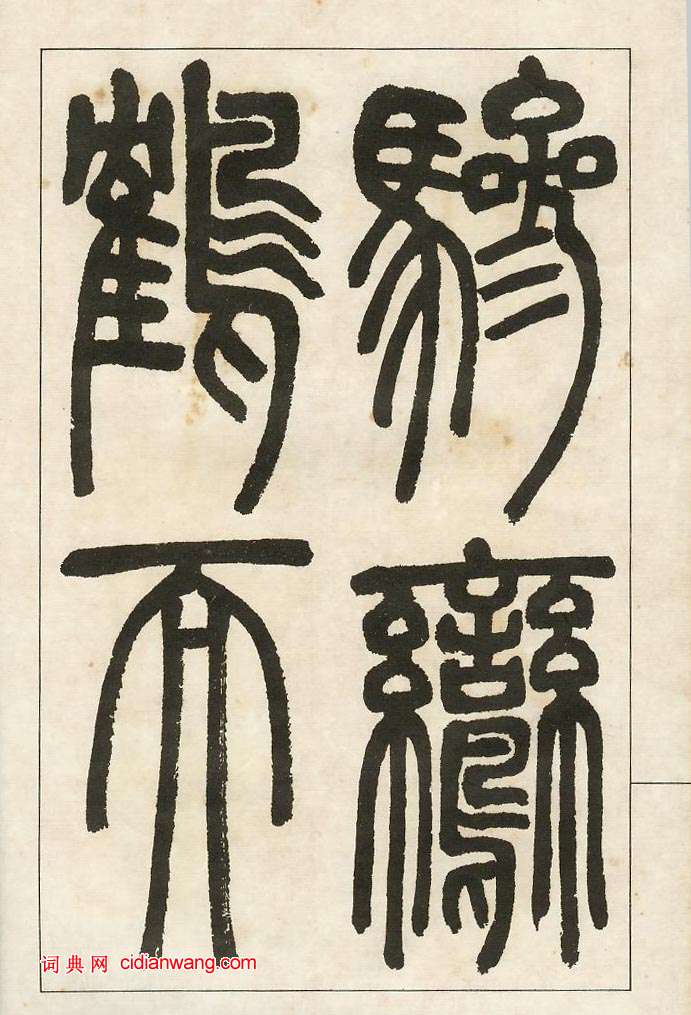 驂鸞
鶴而
词典网 cidianwang.com